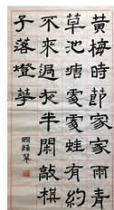 黃梅時節家家雨青
草池塘處處蛙有約
不來過夜半閑敲棋
子落燈華